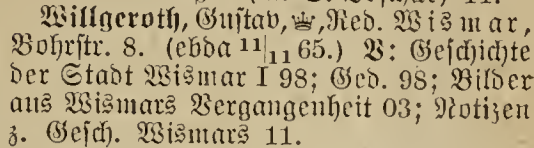 Willgeroth, Gustav, ♛, Red. Wismar,
Bohrstr. 8. (ebda 11/11 65.) V: Geschichte
der Stadt Wismar I 98; Ged. 98; Bilder
aus Wismars Vergangenheit 03; Notizen
z. Gesch. Wismars 11.